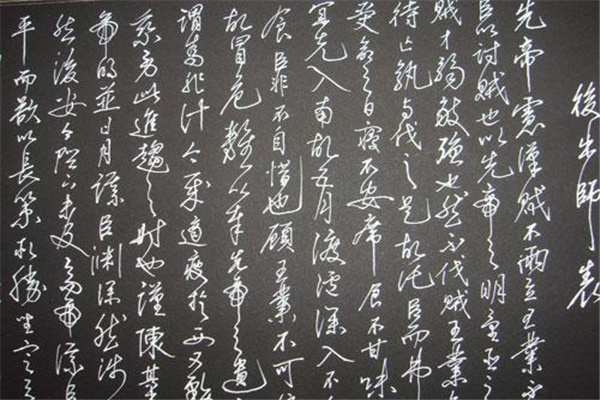 後出師表
先帝慮漢賊不兩立王業不
臣以討賊也以先帝之明量臣之
賊才弱敵強也然不伐賊王業
待亡孰與伐之是故託臣而弗
受命之日寢不安席食不甘味
宜先入南故五月渡瀘深入不
食臣非不自惜也顧王業不可
故冒危難以奉先帝之遺
謂為非計今賊適疲於西又務
兵勞此進趨之時也謹陳其
帝明並日月謀臣淵深然涉
然後安今陛下未及高帝謀臣
平而欲以長策取勝坐定